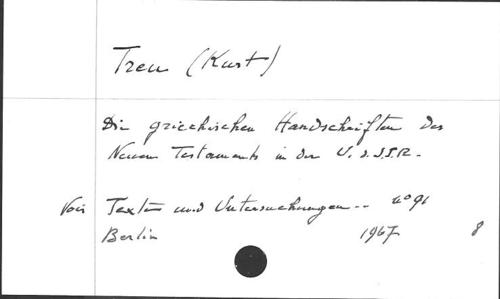 Treu (Kurt)
Die griechischen Handschriften des
Neuen Testaments in der U.d.S.S.R.
Voir Texte und Untersuchungen -- n° 91
Berlin 1967 8